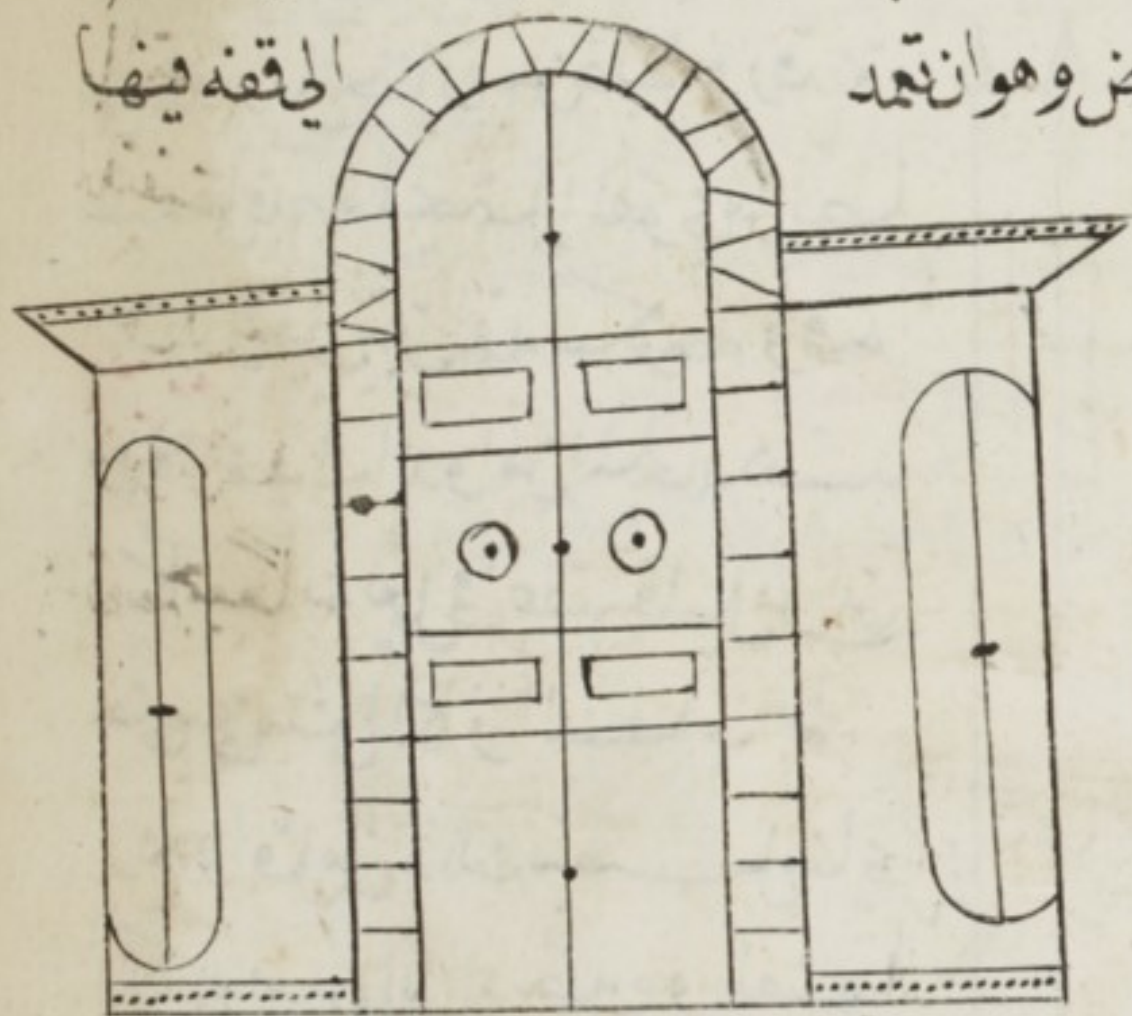 ض وهو ان تعمد الي قفه فيها